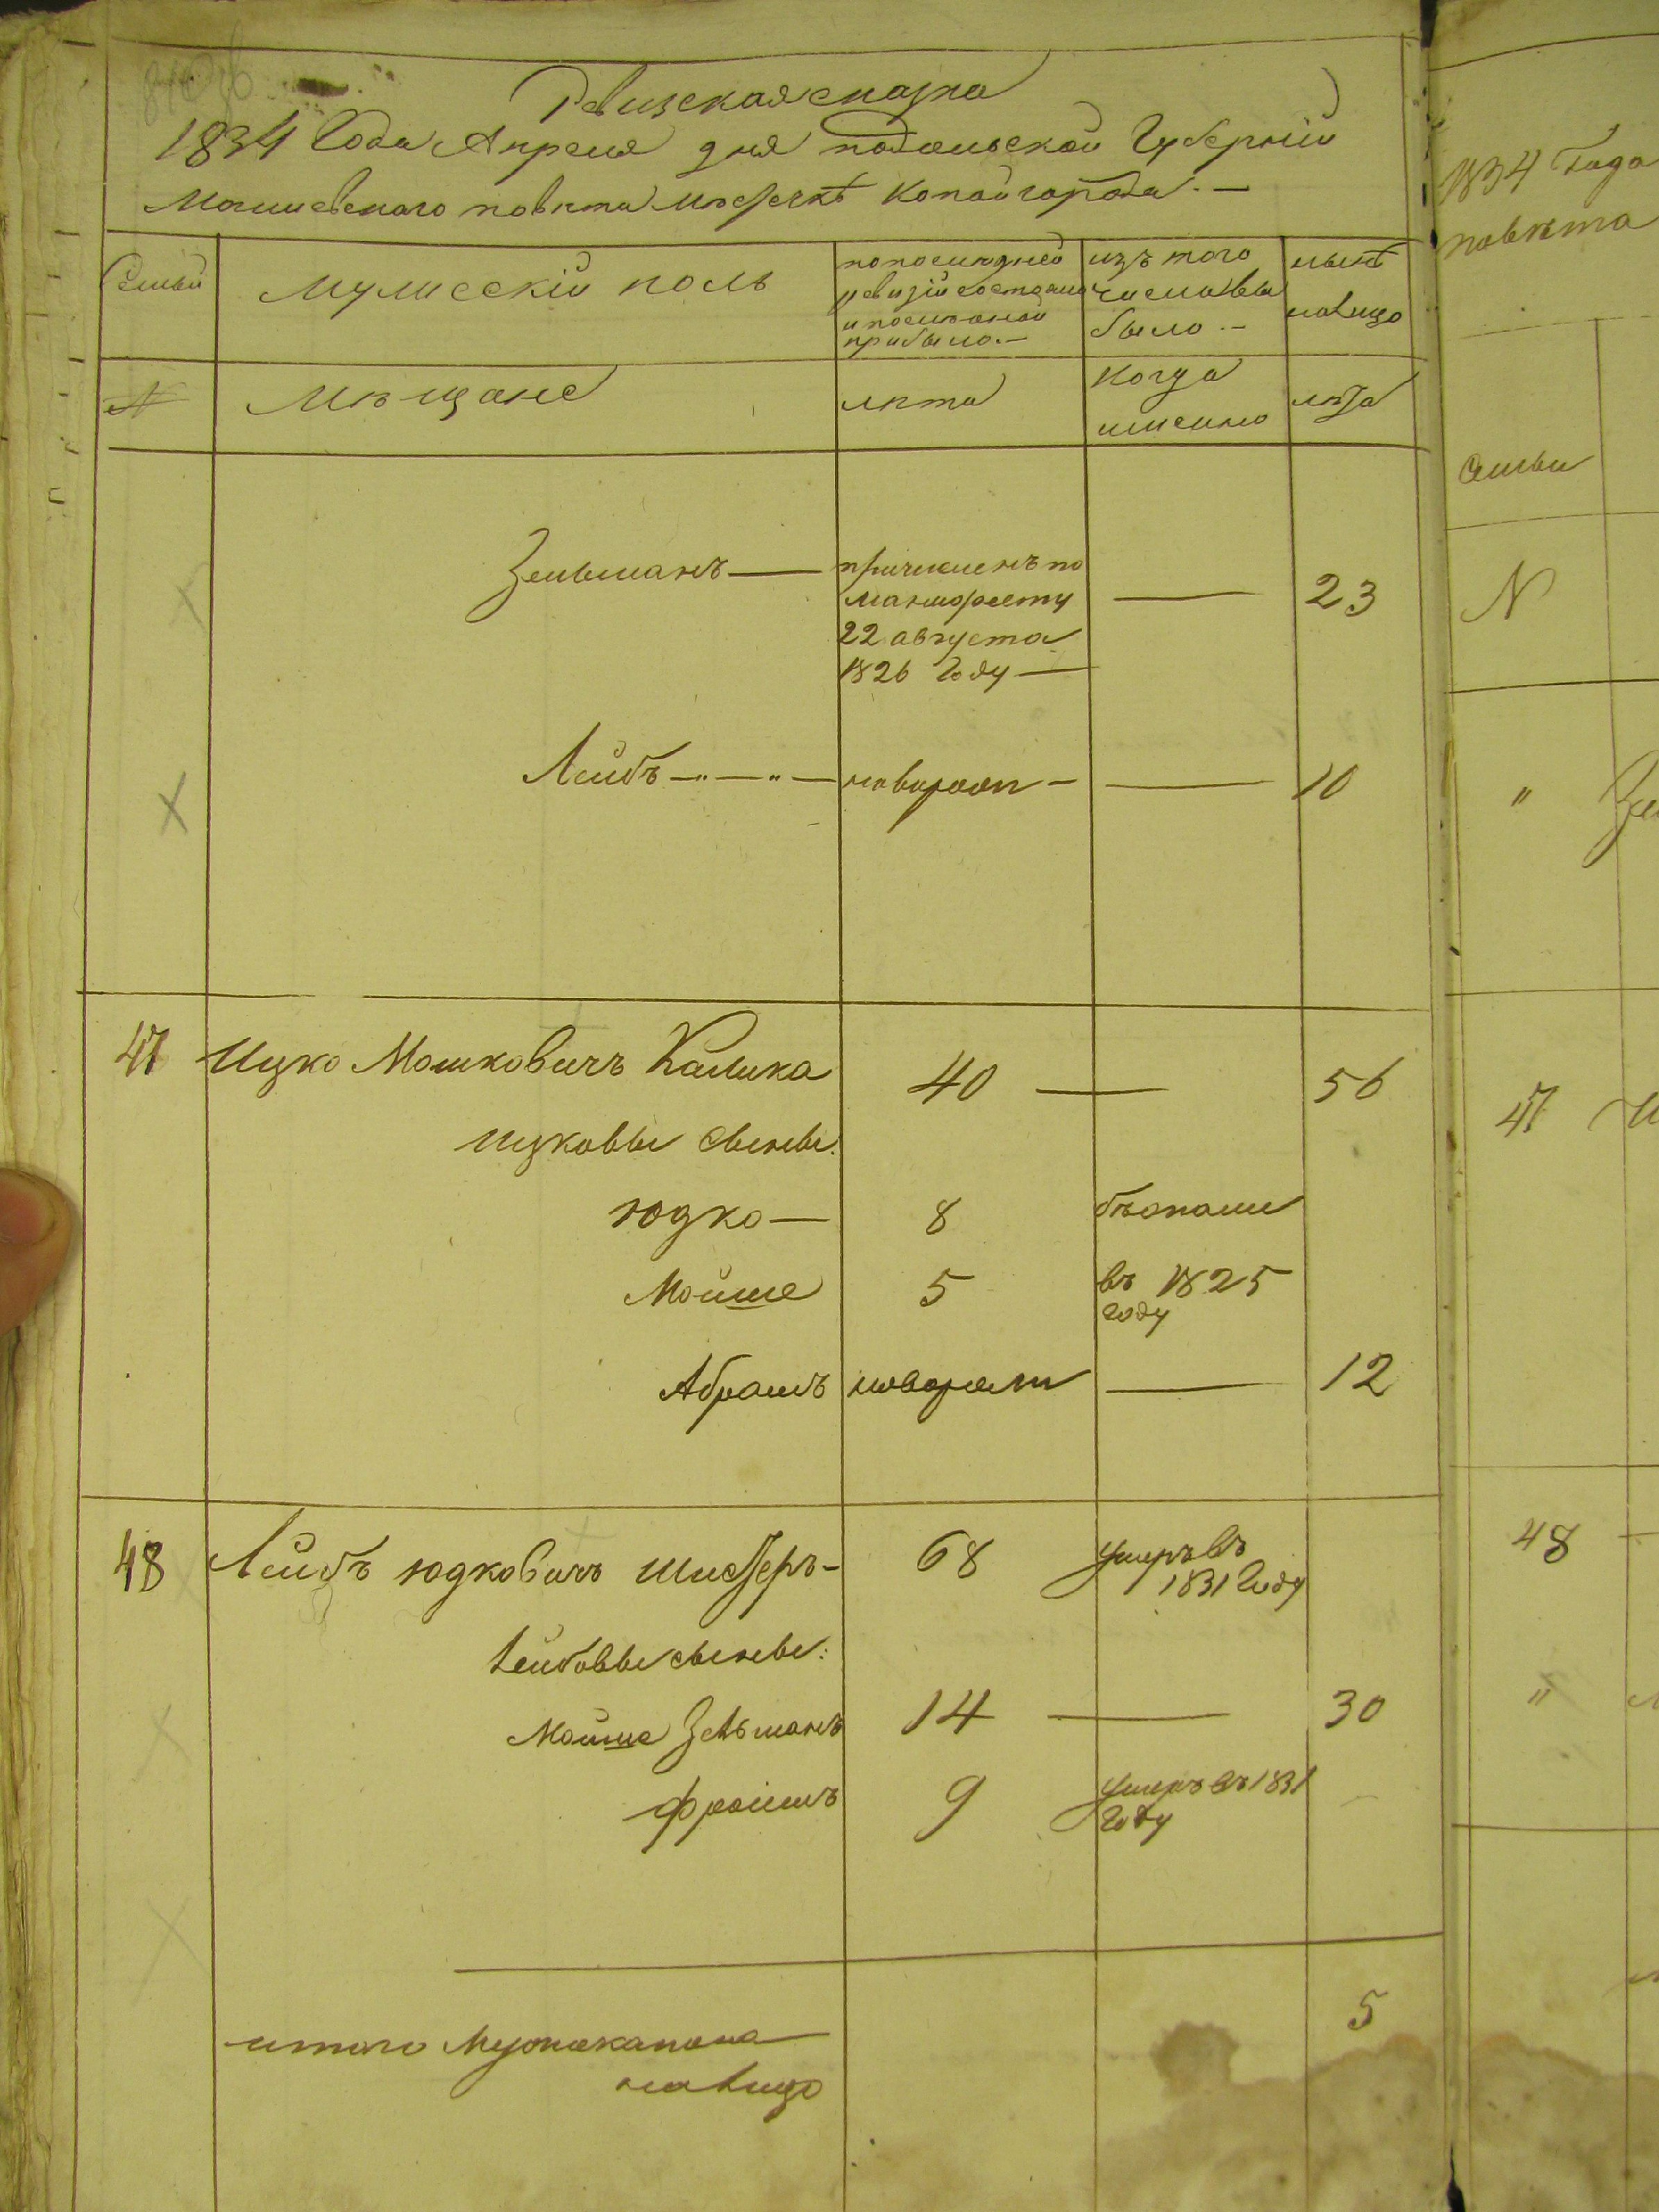 Ревизская сказка
1834 Года Апреля дня подольской Губернии
Могилевского повета Местечкѣ Копайгорода. —
Семьи
Мужескій полъ
по последней
ревизіи состояло
и после оной
прибыло. —
изъ того
числа вы
было. —
нынѣ
налицо
№
Мѣщане
лѣта
Когда
именно
лѣта
Зельманъ — причисленъ по — 23
манифесту
22 августа
1826 Году —
Лейбъ — " — " — новорож — — 10
47 Ицко Мошковичъ Калика 40 — 56
ицковы сыновьи:
юдко — 8 бѣжали
Мойше 5 въ 1825
году
Абрамъ новорож — 12
48 Лейбъ юдковичъ 68 умеръ въ
1831 Году
Лейбовы сыновьи:
Мойше Зельманъ 14 — 30
фроимъ 9 умеръ въ 1831
Году
5
итого Мужеска пола
налицо
1834 Года
повѣта
семьи
N
"
47
48
"